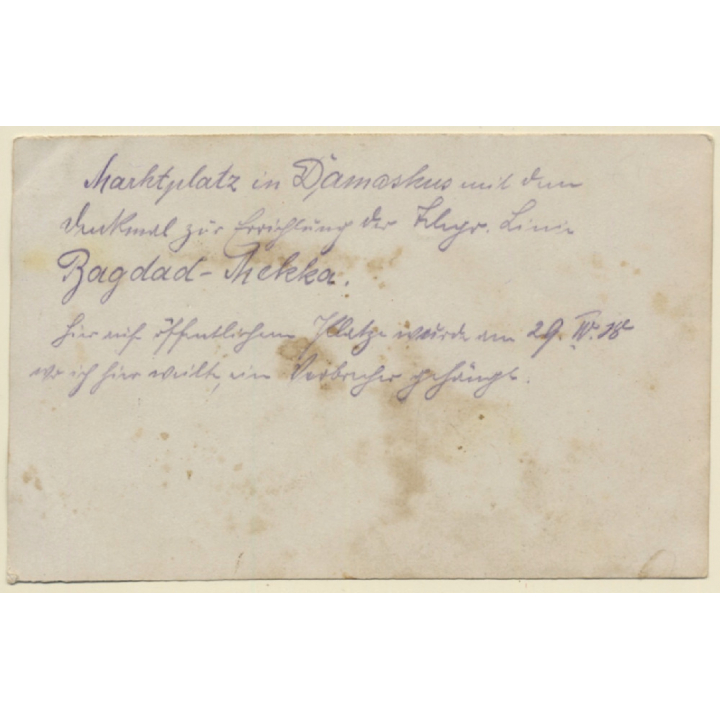 Marktplatz in Damaskus mit dem
Denkmal zur Errichtung der Telegr. Linie
Bagdad-Mekka.
Hier auf öffentlichem Platze wurde am 29. IV. 18
wo ich hier weilte, ein Verbrecher gehängt.